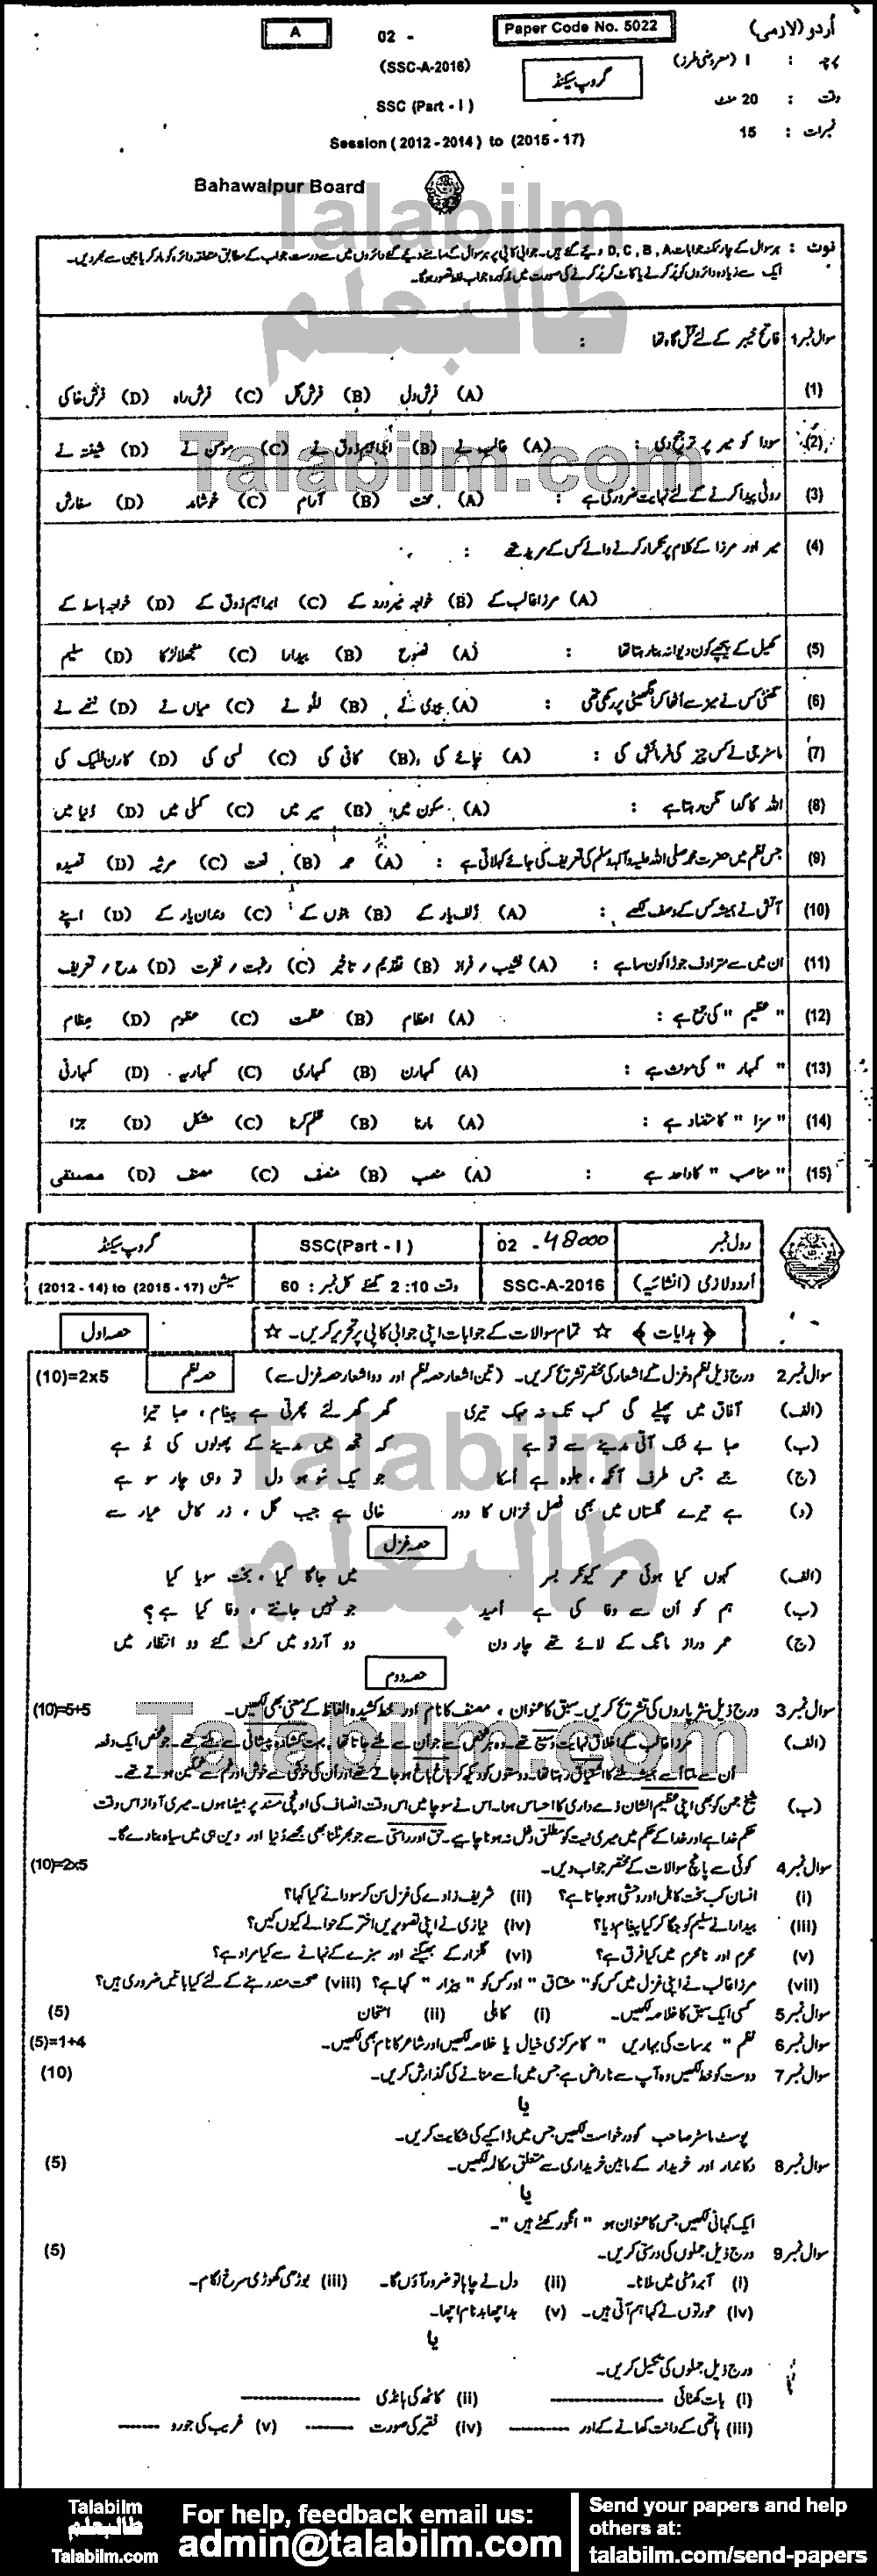 اُردو (لازمی)
Paper Code No. 5022
02 -
A
پرچہ : I (معروضی طرز)
گروپ سیکنڈ
(SSC-A-2016)
وقت : 20 منٹ
SSC (Part - I)
نمبرات : 15
Session (2012 - 2014) to (2015 - 17)
Bahawalpur Board
Talabilm
طالبعلم
نوٹ : ہر سوال کے چار ممکنہ جوابات D, C, B, A دیے گئے ہیں۔ جوابی کاپی پر ہر سوال کے سامنے دیے گئے دائروں میں سے درست جواب کے مطابق متعلقہ دائرہ کو مارکر یا پین سے بھر دیں۔
ایک سے زیادہ دائروں کو پُر کرنے یا کاٹ کر پُر کرنے کی صورت میں مذکورہ جواب غلط تصور ہوگا۔
سوال نمبر 1 فاتح خیبر کے لئے تکل گاہ تھا :
(1) (A) فرش دل (B) فرش گل (C) فرش راہ (D) فرش خاکی
(2) سودا کو میر پر ترجیح دی : (A) غالب نے (B) ابراہیم ذوق نے (C) مومن نے (D) شیفتہ نے
Talabilm.com
(3) روٹی پیدا کرنے کے لئے نہایت ضروری ہے : (A) محنت (B) آرام (C) خوشامد (D) سفارش
(4) میر اور مرزا کے کلام پر تکرار کرنے والے کس کے مرید تھے :
(A) مرزا غالب کے (B) خواجہ میر درد کے (C) ابراہیم ذوق کے (D) خواجہ باسط کے
(5) کھیل کے پیچھے کون دیوانہ بنا رہتا تھا : (A) نصوح (B) بیدارا (C) منجھلا لڑکا (D) سلیم
(6) گھنٹی کس نے میز سے اُٹھا کر انگیٹھی پر رکھی تھی : (A) بیوی نے (B) للّو نے (C) میاں نے (D) ننھے نے
(7) ماسٹر جی نے کس چیز کی فرمائش کی : (A) چائے کی (B) کافی کی (C) لسی کی (D) کارن فلیک کی
(8) اللہ کا گدا مگن رہتا ہے : (A) سکون میں (B) سیر میں (C) کملی میں (D) دُنیا میں
(9) جس نظم میں حضرت محمد صلی اللہ علیہ وآلہ وسلم کی تعریف کی جائے کہلاتی ہے : (A) حمد (B) نعت (C) مرثیہ (D) قصیدہ
(10) آتش نے ہمیشہ کس کے وصف لکھے : (A) زُلف یار کے (B) بتوں کے (C) دندان یار کے (D) اپنے
(11) ان میں سے مترادف جوڑا کون سا ہے : (A) نشیب / فراز (B) تقدیم / تاخیر (C) رغبت / نفرت (D) مدح / تعریف
(12) " عظیم " کی جمع ہے : (A) اعظام (B) عظمت (C) عظوم (D) عظام
(13) " کمہار " کی مونث ہے : (A) کمہارن (B) کمہاری (C) کمہاریہ (D) کمہارنی
(14) " سزا " کا متضاد ہے : (A) مارنا (B) ظلم کرنا (C) مشکل (D) جزا
(15) " مناصب " کا واحد ہے : (A) منصب (B) منصف (C) مصنف (D) مستقی
رول نمبر 02 - 48000 SSC(Part - I) گروپ سیکنڈ
اُردو لازمی (انشائیہ) SSC-A-2016 وقت 2:10 گھنٹے کل نمبر : 60 سیشن (2012 - 14) to (2015 - 17)
﴿ ہدایات ﴾ ☆ تمام سوالات کے جوابات اپنی جوابی کاپی پر تحریر کریں۔ ☆
حصہ اول
سوال نمبر 2 درج ذیل نظم و غزل کے اشعار کی مختصر تشریح کریں۔ (تین اشعار حصہ نظم اور دو اشعار حصہ غزل سے) حصہ نظم (10)=2x5
(الف) آفاق میں پھیلے گی کب تک نہ مہک تیری گھر گھر لئے پھرتی ہے پیغام، صبا تیرا
(ب) صبا بے شک آتی مدینے سے تو ہے کہ تجھ میں مدینے کے پھولوں کی بُو ہے
Talabilm
(ج) جے جس طرف آنکھ، جلوہ ہے اُسکا جو یک سُو ہو دل تو وہی چار سو ہے
(د) ہے تیرے گلستاں میں بھی فصل خزاں کا دور خالی ہے جیب گل، زر کامل عیار سے
طالبعلم
حصہ غزل
(الف) کہوں کیا ہوئی عمر کیونکر بسر میں جاگا کیا، بخت سویا کیا
(ب) ہم کو اُن سے وفا کی ہے اُمید جو نہیں جانتے، وفا کیا ہے؟
(ج) عمر دراز مانگ کے لائے تھے چار دن دو آرزو میں کٹ گئے دو انتظار میں
حصہ دوم
سوال نمبر 3 درج ذیل نثر پاروں کی تشریح کریں۔ سبق کا عنوان، مصنف کا نام اور خط کشیدہ الفاظ کے معنی بھی لکھیں۔ (10)=5+5
Talabilm.com
(الف) مرزا غالب کے اخلاق نہایت وسیع تھے۔ وہ ہر شخص سے جو اُن سے ملنے جاتا تھا، بہت کشادہ پیشانی سے ملتے تھے۔ جو شخص ایک دفعہ
اُن سے ملتا اُسے ہمیشہ ملنے کا اشتیاق رہتا تھا۔ دوستوں کو دیکھ کر باغ باغ ہو جاتے تھے اور اُن کی خوشی سے خوش اور غم سے غمگین ہوتے تھے۔
(ب) شیخ جمن کو بھی اپنی عظیم الشان ذمے داری کا احساس ہوا۔ اس نے سوچا میں اس وقت انصاف کی اونچی مسند پر بیٹھا ہوں۔ میری آواز اس وقت
حکم خدا ہے اور خدا کے حکم میں میری نیت کو مطلق دخل نہ ہونا چاہیے۔ حق اور راستی سے جو بھر ٹلنا بھی مجھے دُنیا اور دین ہی میں سیاہ بنا دے گا۔
سوال نمبر 4 کوئی سے پانچ سوالات کے مختصر جواب دیں۔ (10)=2x5
(i) انسان کب سخت کاہل اور وحشی ہو جاتا ہے؟ (ii) شریف زادے کی غزل سن کر سودا نے کیا کہا؟
(iii) بیدارا نے سلیم کو جگا کر کیا پیغام دیا؟ (iv) نیازی نے اپنی تصویریں اختر کے حوالے کیوں کیں؟
(v) محرم اور نامحرم میں کیا فرق ہے؟ (vi) گلزار کے بھیگنے اور سبزے کے نہانے سے کیا مراد ہے؟
(vii) مرزا غالب نے اپنی غزل میں کس کو " مشتاق " اور کس کو " بیزار " کہا ہے؟ (viii) صحت مند رہنے کے لئے کیا باتیں ضروری ہیں؟
سوال نمبر 5 کسی ایک سبق کا خلاصہ لکھیں۔ (i) کاہلی (ii) امتحان (5)
سوال نمبر 6 نظم " برسات کی بہاریں " کا مرکزی خیال یا خلاصہ لکھیں اور شاعر کا نام بھی لکھیں۔ (5)=1+4
سوال نمبر 7 دوست کو خط لکھیں وہ آپ سے ناراض ہے جس میں اُسے منانے کی گذارش کریں۔ (10)
یا
پوسٹ ماسٹر صاحب کو درخواست لکھیں جس میں ڈاکیے کی شکایت کریں۔
سوال نمبر 8 دکاندار اور خریدار کے مابین خریداری سے متعلق مکالمہ لکھیں۔ (5)
یا
ایک کہانی لکھیں جس کا عنوان ہو " انگور کھٹے ہیں "۔
سوال نمبر 9 درج ذیل جملوں کی درستی کریں۔ (5)
(i) آبرو مٹی میں ملانا۔ (ii) دل نے چاہا تو ضرور آؤں گا۔ (iii) بوڑھی گھوڑی سرخ لگام۔
(iv) عورتوں نے کہا ہم آتی ہیں۔ (v) بد اچھا بدنام اچھا۔
یا
درج ذیل جملوں کی تکمیل کریں۔
(i) بات کھٹائی ———— (ii) کاٹھ کی ہانڈی ————
(iii) ہاتھی کے دانت کھانے کے اور ———— (iv) فقیر کی صورت ———— (v) غریب کی جورو ————
Talabilm
طالبعلم
Talabilm.com
For help, feedback email us:
admin@talabilm.com
Send your papers and help
others at:
talabilm.com/send-papers